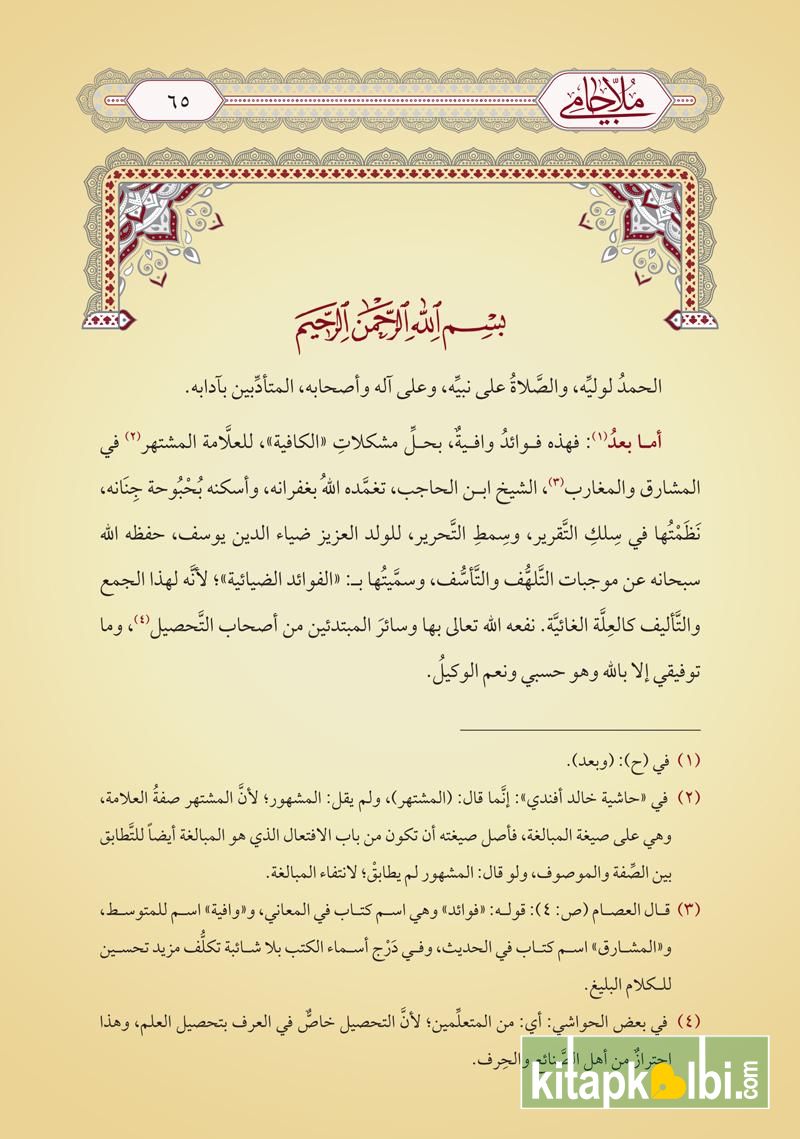 ملا جامي
٦٥
بسم الله الرحمن الرحيم
الحمدُ لوليِّه، والصَّلاةُ على نبيِّه، وعلى آله وأصحابه، المتأدِّبين بآدابه.
أمـا بعدُ(١): فهذه فـوائدُ وافـيةٌ، بحـلِّ مشكلاتِ «الكافية»، للعلَّامة المشتهر(٢) في
المشارق والمغارب(٣)، الشيخ ابـن الحاجب، تغمَّده اللهُ بغفرانه، وأسكنه بُحْبُوحة جِنَانه،
نَظَمْتُها في سِلكِ التَّقرير، وسِمطِ التَّحرير، للولد العزيز ضياء الدين يوسف، حفظه الله
سبحانه عن موجبات التَّلهُّف والتَّأسُّف، وسمَّيتُها بـ: «الفوائد الضيائية»؛ لأنَّه لهذا الجمع
والتَّأليف كالعِلَّة الغائيَّة. نفعه الله تعالى بها وسائرَ المبتدئين من أصحاب التَّحصيل(٤)، وما
توفيقي إلا بالله وهو حسبي ونعم الوكيلُ.
(١) في (ح): (وبعد).
(٢) في «حاشية خالد أفندي»: إنَّما قال: (المشتهر)، ولم يقل: المشهور؛ لأنَّ المشتهر صفةُ العلامة،
وهي على صيغة المبالغة، فأصل صيغته أن تكون من باب الافتعال الذي هو المبالغة أيضاً للتَّطابق
بين الصِّفة والموصوف، ولو قال: المشهور لم يطابقْ؛ لانتفاء المبالغة.
(٣) قـال العصـام (ص: ٤): قولـه: «فوائد» وهي اسـم كتـاب في المعاني، و«وافية» اسـم للمتوسـط،
و«المشـارق» اسـم كتـاب في الحديث، وفـي دَرْج أسـماء الكتب بلا شـائبة تكلُّف مزيد تحسـين
للـكلام البليغ.
(٤) في بعض الحواشي: أي: من المتعلِّمين؛ لأنَّ التحصيل خاصٌّ في العرف بتحصيل العلم، وهذا
احترازٌ من أهل الصَّنائع والحِرف.
kitapkalbi.com